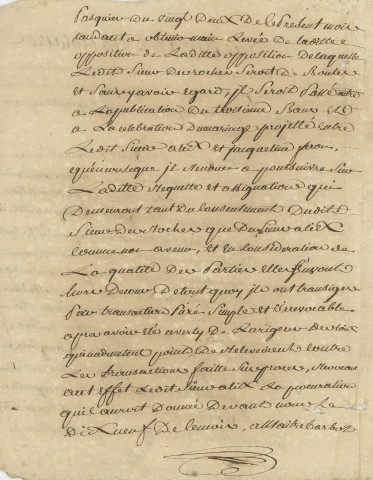 Pasquier du vingt Deux De le present mois
tendant a obtenir main Levée De laditte
opposition De Laditte opposition De laquelle
Ledit Sieur Desrocher seroit De Bouter
et Sans y avoir egard, il Seroit Passé outre
a La publication Du troisieme Banc et
a La celebration Du mariage projetté entre
Ledit Sieur alix et Jacqueline
que il renonce a poursuivre Sur
Laditte Requette et assignation qui
Demeuront tant Du Consentement Dudit
Sieur Desrocher que Du Sieur alix
comme non avenue, et en Consideration De
La qualité Des Parties elle
hors De Cour De tout quoy ils ont transiger
Par transaction Pure Simple et irrevocable
apres avoir été averty De La rigeur des loix
qui nadmettent point De Relevement Contre
Les transactions faitte revoquant
a cet effet Ledit Sieur alix La procuration
quil auroit Donnée Devant nous Le
Dix neuf De le mois, a Maitre Barbot